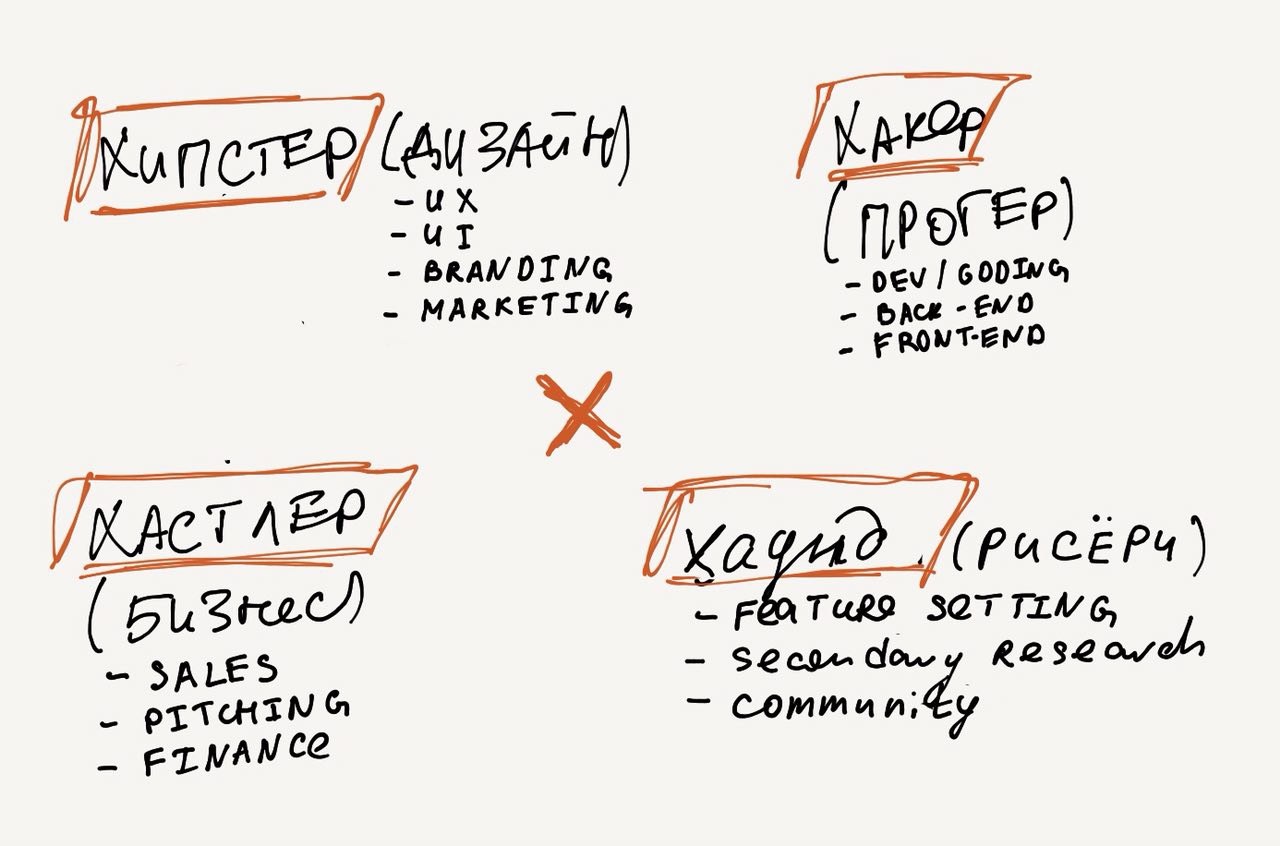 ХИПСТЕР (ДИЗАЙН)
- UX
- UI
- BRANDING
- MARKETING
ХАКЕР
(ПРОГЕР)
- DEV/GODING
- BACK-END
- FRONT-END
X
ХАСТЛЕР
(БИЗНЕС)
- SALES
- PITCHING
- FINANCE
(РИСЁРЧ)
- FEATURE SETTING
- secondary Research
- community